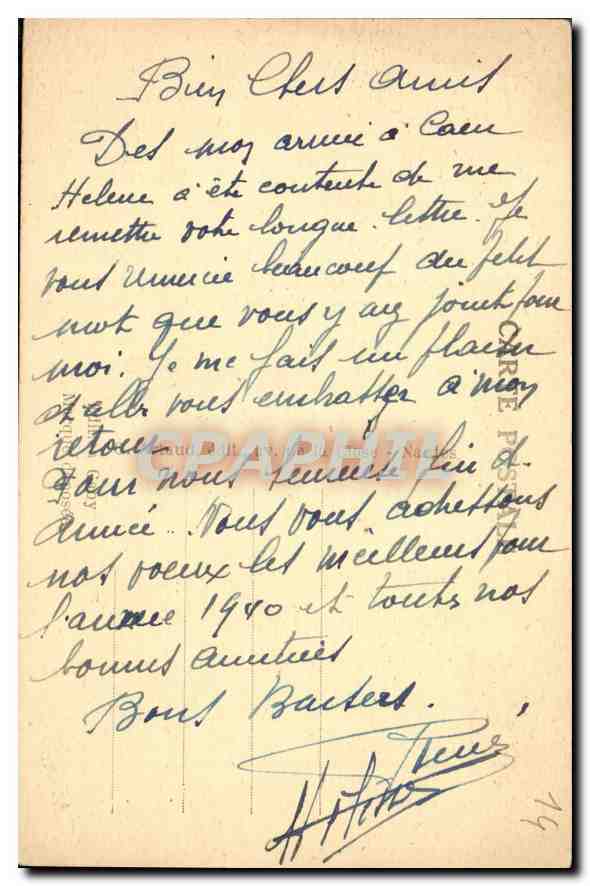 Bien Chers Amis
Des mon arrivée à Caen
Helene a été contente de me
remettre votre longue lettre. Je
vous remercie beaucoup du petit
mot que vous y avez joint pour
moi. Je me fais un plaisir
d'aller vous embrasser à mon
retour
Pour nous termine fin d'
année. Nous vous adressons
nos voeux les meilleurs pour
l'année 1940 et toutes nos
bonnes amitiés
Bons Baisers.
René
Hélène
14
CARTE POSTALE
édit., - Nantes
CPAPHIL